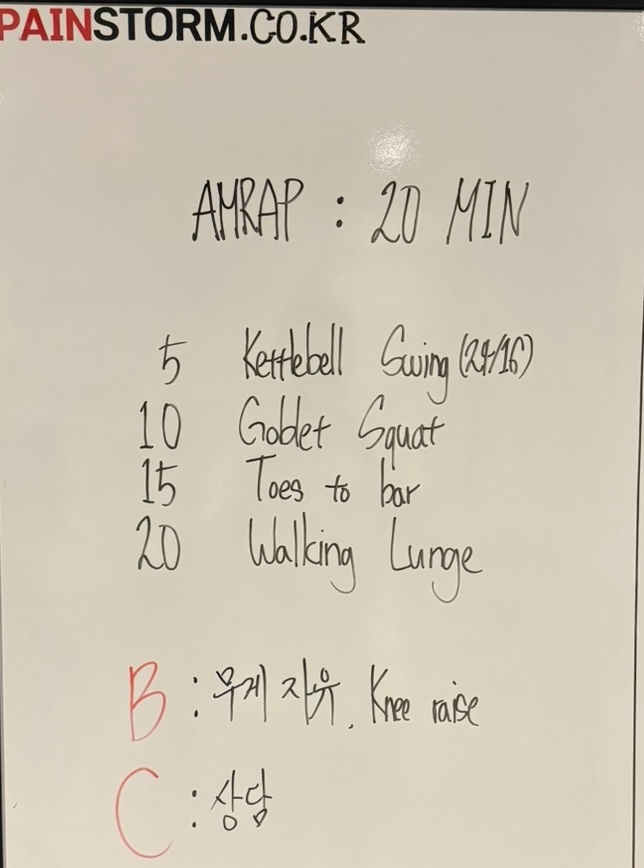 PAINSTORM.CO.KR
AMRAP : 20 MIN
5 Kettlebell Swing (24/16)
10 Goblet Squat
15 Toes to bar
20 Walking Lunge
B : 무게 자유, Knee raise
C : 상담